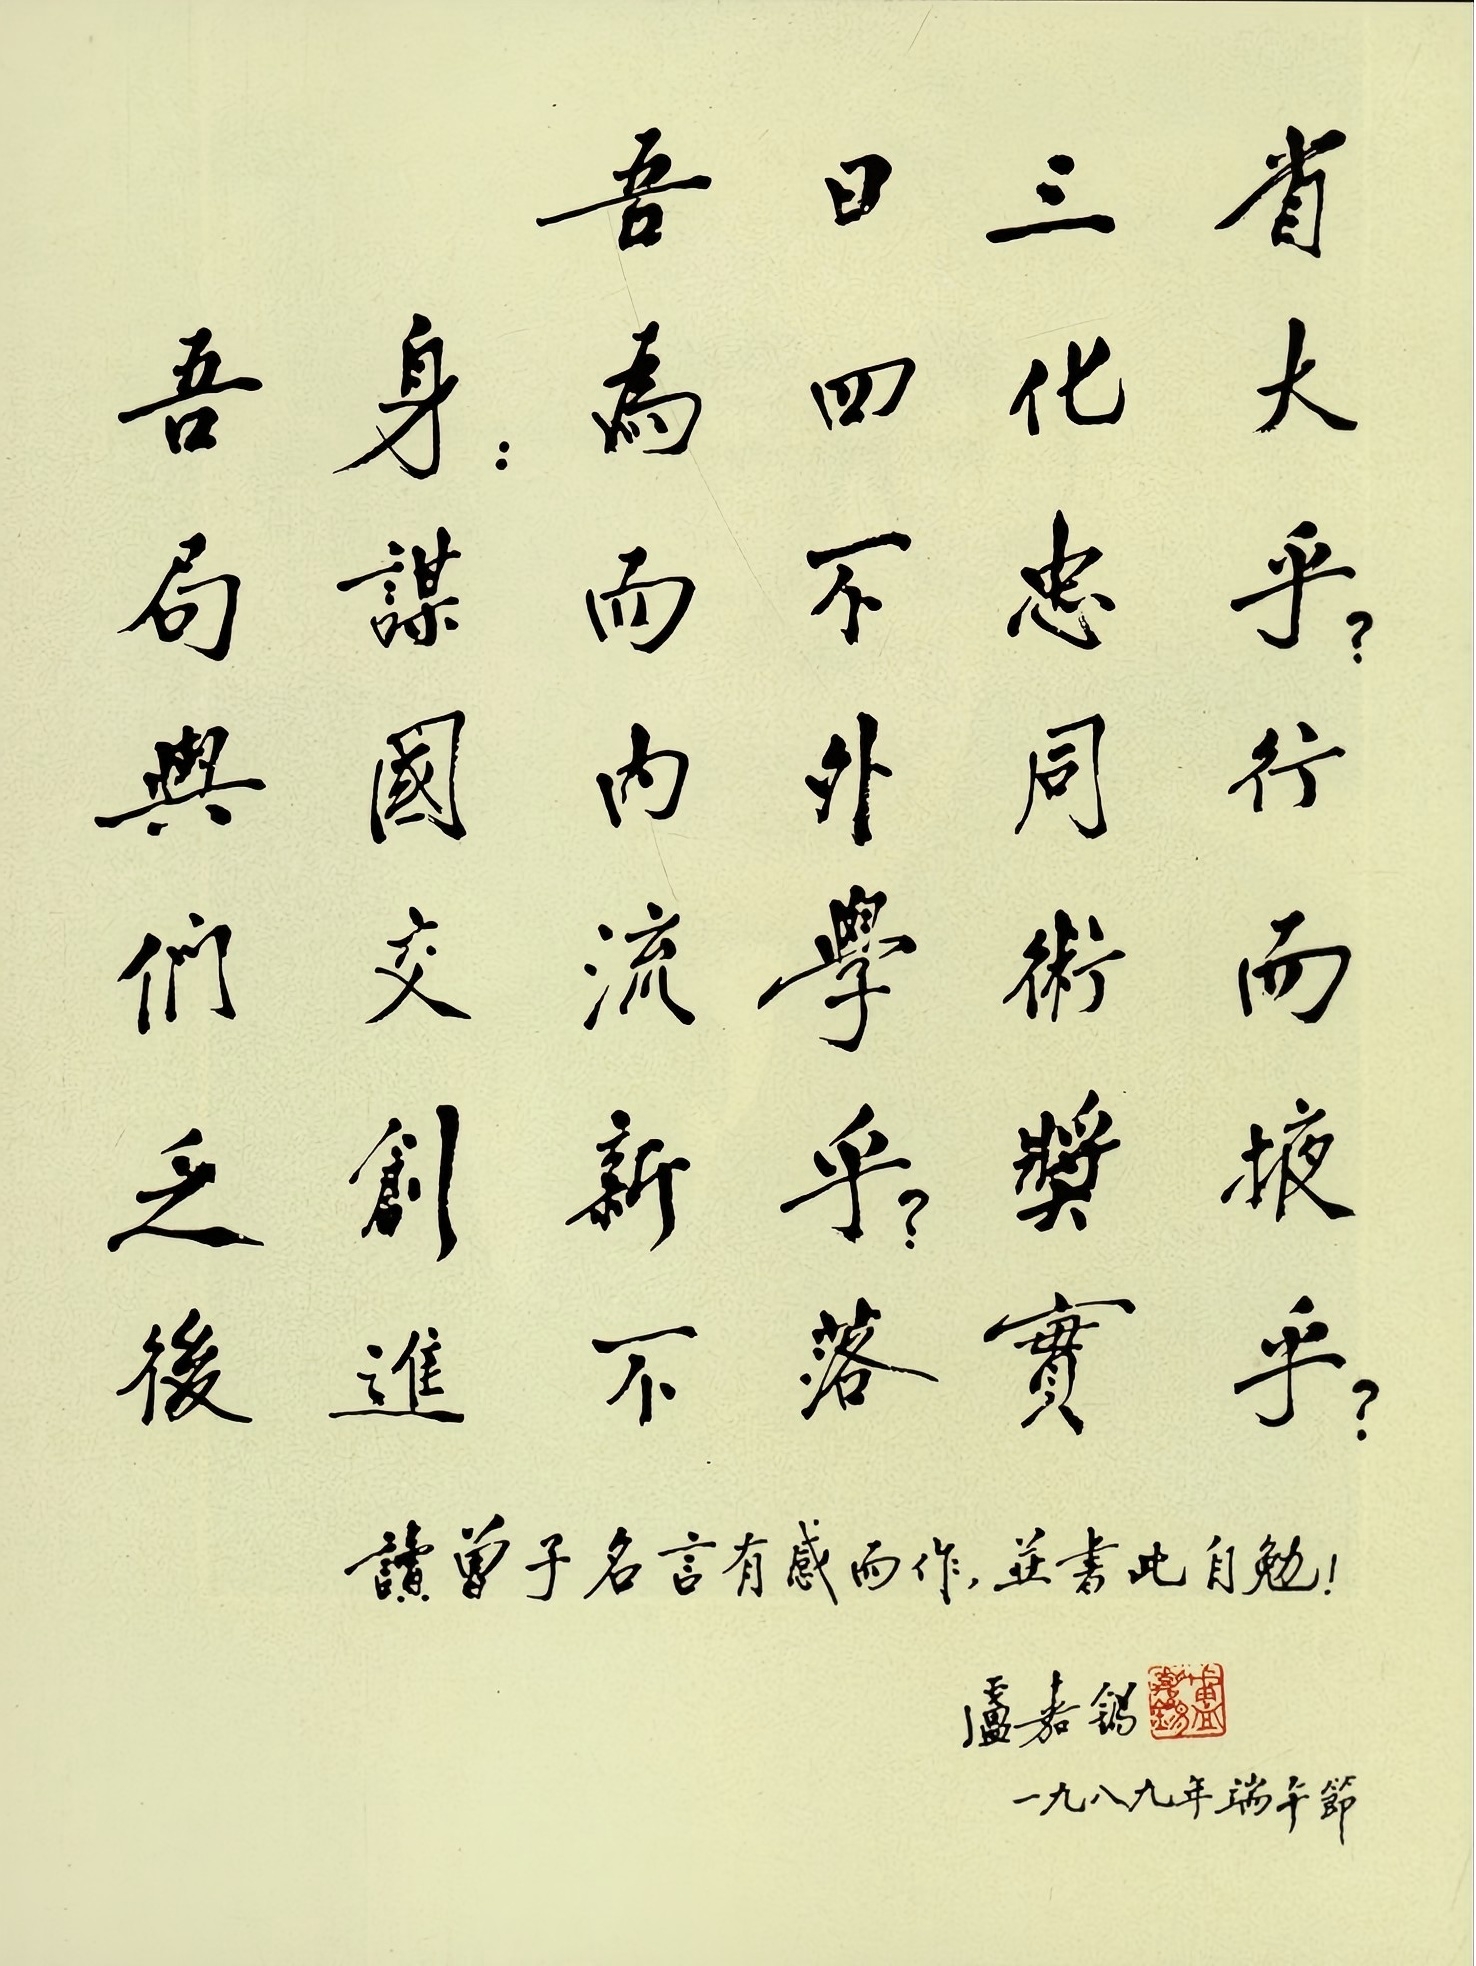 吾日三省
吾身:為四化大
局謀而不忠乎?
與國內外同行
們交流學術而
乏創新乎?獎掖
後進不落實乎?
讀曾子名言有感而作,並書此自勉!
盧嘉錫
盧嘉錫
一九八九年端午節